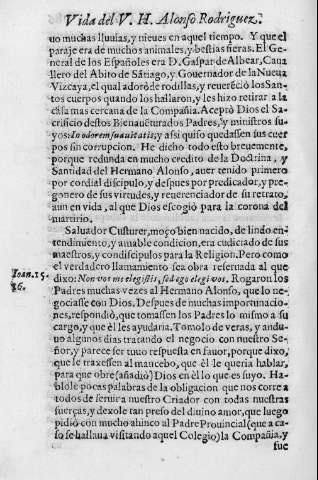 Vida del V. H. Alonso Rodriguez.
uo muchas lluuias, y nieues en aquel tiempo. Y que el
paraje era de muchos animales, y bestias fieras. El Ge-
neral de los Españoles era D. Gaspar de Albear, Caua
llero del Abito de Sãtiago, y Gouernador de la Nueua
Vizcaya, el qual adorò de rodillas, y reuereñciò los San-
tos cuerpos quando los hallaron, y les hizo retirar a la
casa mas cercana de la Compañia. Aceptò Dios el Sa-
crificio destos Bienauẽturados Padres, y ministros su-
yos: In odorem suauitatis, y assi quiso quedassen sus cuer
pos sin corrupcion. He dicho todo esto breuemente,
porque redunda en mucho credito de la Doctrina, y
Santidad del Hermano Alonso, auer tenido primero
por cordial discipulo, y despues por predicador, y pre-
gonero de sus virtudes, y reuerenciador de su retrato,
aun en vida, al que Dios escogiò para la corona del
martirio.
Saluador Custurer, moço bien nacido, de lindo en-
tendimiento, y amable condicion, era cudiciado de sus
maestros, y condiscipulos para la Religion. Pero como
el verdadero llamamiento sea obra reseruada al que
Ioan. 15.
16.
dixo: Non vos me elegistis, sed ego elegi vos. Rogaron los
Padres muchas vezes al Hermano Alonso, que lo ne-
gociasse con Dios. Despues de muchas importunacio-
nes, respondiò, que tomassen los Padres lo mismo a su
cargo, y que èl les ayudaria. Tomolo de veras, y andu-
uo algunos dias tratando el negocio con nuestro Se-
ñor, y parece ser tuuo respuesta en fauor, porque dixo,
que le traxessen al mancebo, que èl le queria hablar,
para que obre (añadiò) Dios en èl lo que es suyo. Ha-
blole pocas palabras de la obligacion que nos corre a
todos de seruir a nuestro Criador con todas nuestras
fuerças, y dexole tan preso del diuino amor, que luego
pidiò con mucho ahinco al Padre Prouincial (que a ca-
so se hallaua visitando aquel Colegio) la Compañia, y
fue